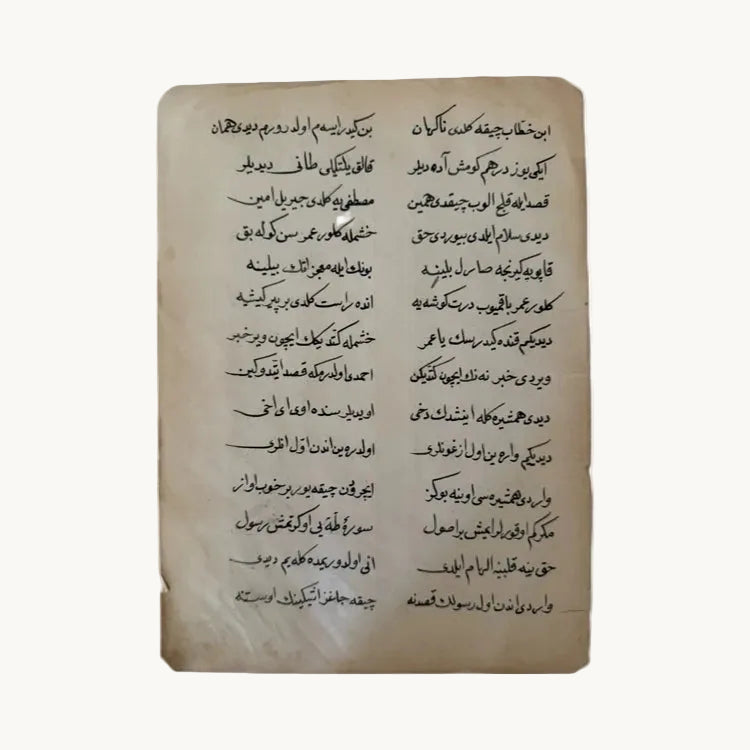 ابن خطاب چیقه کلدی ناکهان بن کیدر ایسه م اولدرورم دیدی همان
ایکی یوز درهم کومش آده دیلر قالق یلتکیلی طانی دیدیلر
قصد ایله قلج الوب چیقدی همین مصطفی یه کلدی جبریل امین
دیدی سلام ایلدی بیوردی حق خشمله کلور عمر سن کوله بق
قاپویه کیرنجه صارل بلینه بونك ایله معجزاتك بیلینه
کلور عمر باقمیوب درت کوشه یه انده راست کلدی بر پیر کیشیه
دیدیکم قنده کیدرسك یا عمر خشمله کتدیکك ایچون ویر خبر
ویردی خبر نه نك ایچون کتدیکن احمدی اولدرمکه قصد ایتدوکین
دیدی همشیره کله اینشدك دخی اویدیلر سنده اوی ای اخی
دیدیکم واره ین اول ازغونلری اولدره ین اندن اول انلری
واردی همشیره سی اوینه بوکز ایچرودن چیقه یورر بر خوب اواز
مکرکم اوقورلرایمش براصول سورۀ طه یی اوکرتمش رسول
حق ینه قلبینه الهام ایلدی انی اولدوریمده کله یم دیدی
واردی اندن اول رسولك قصدنه چیقه جاغز اوستنه